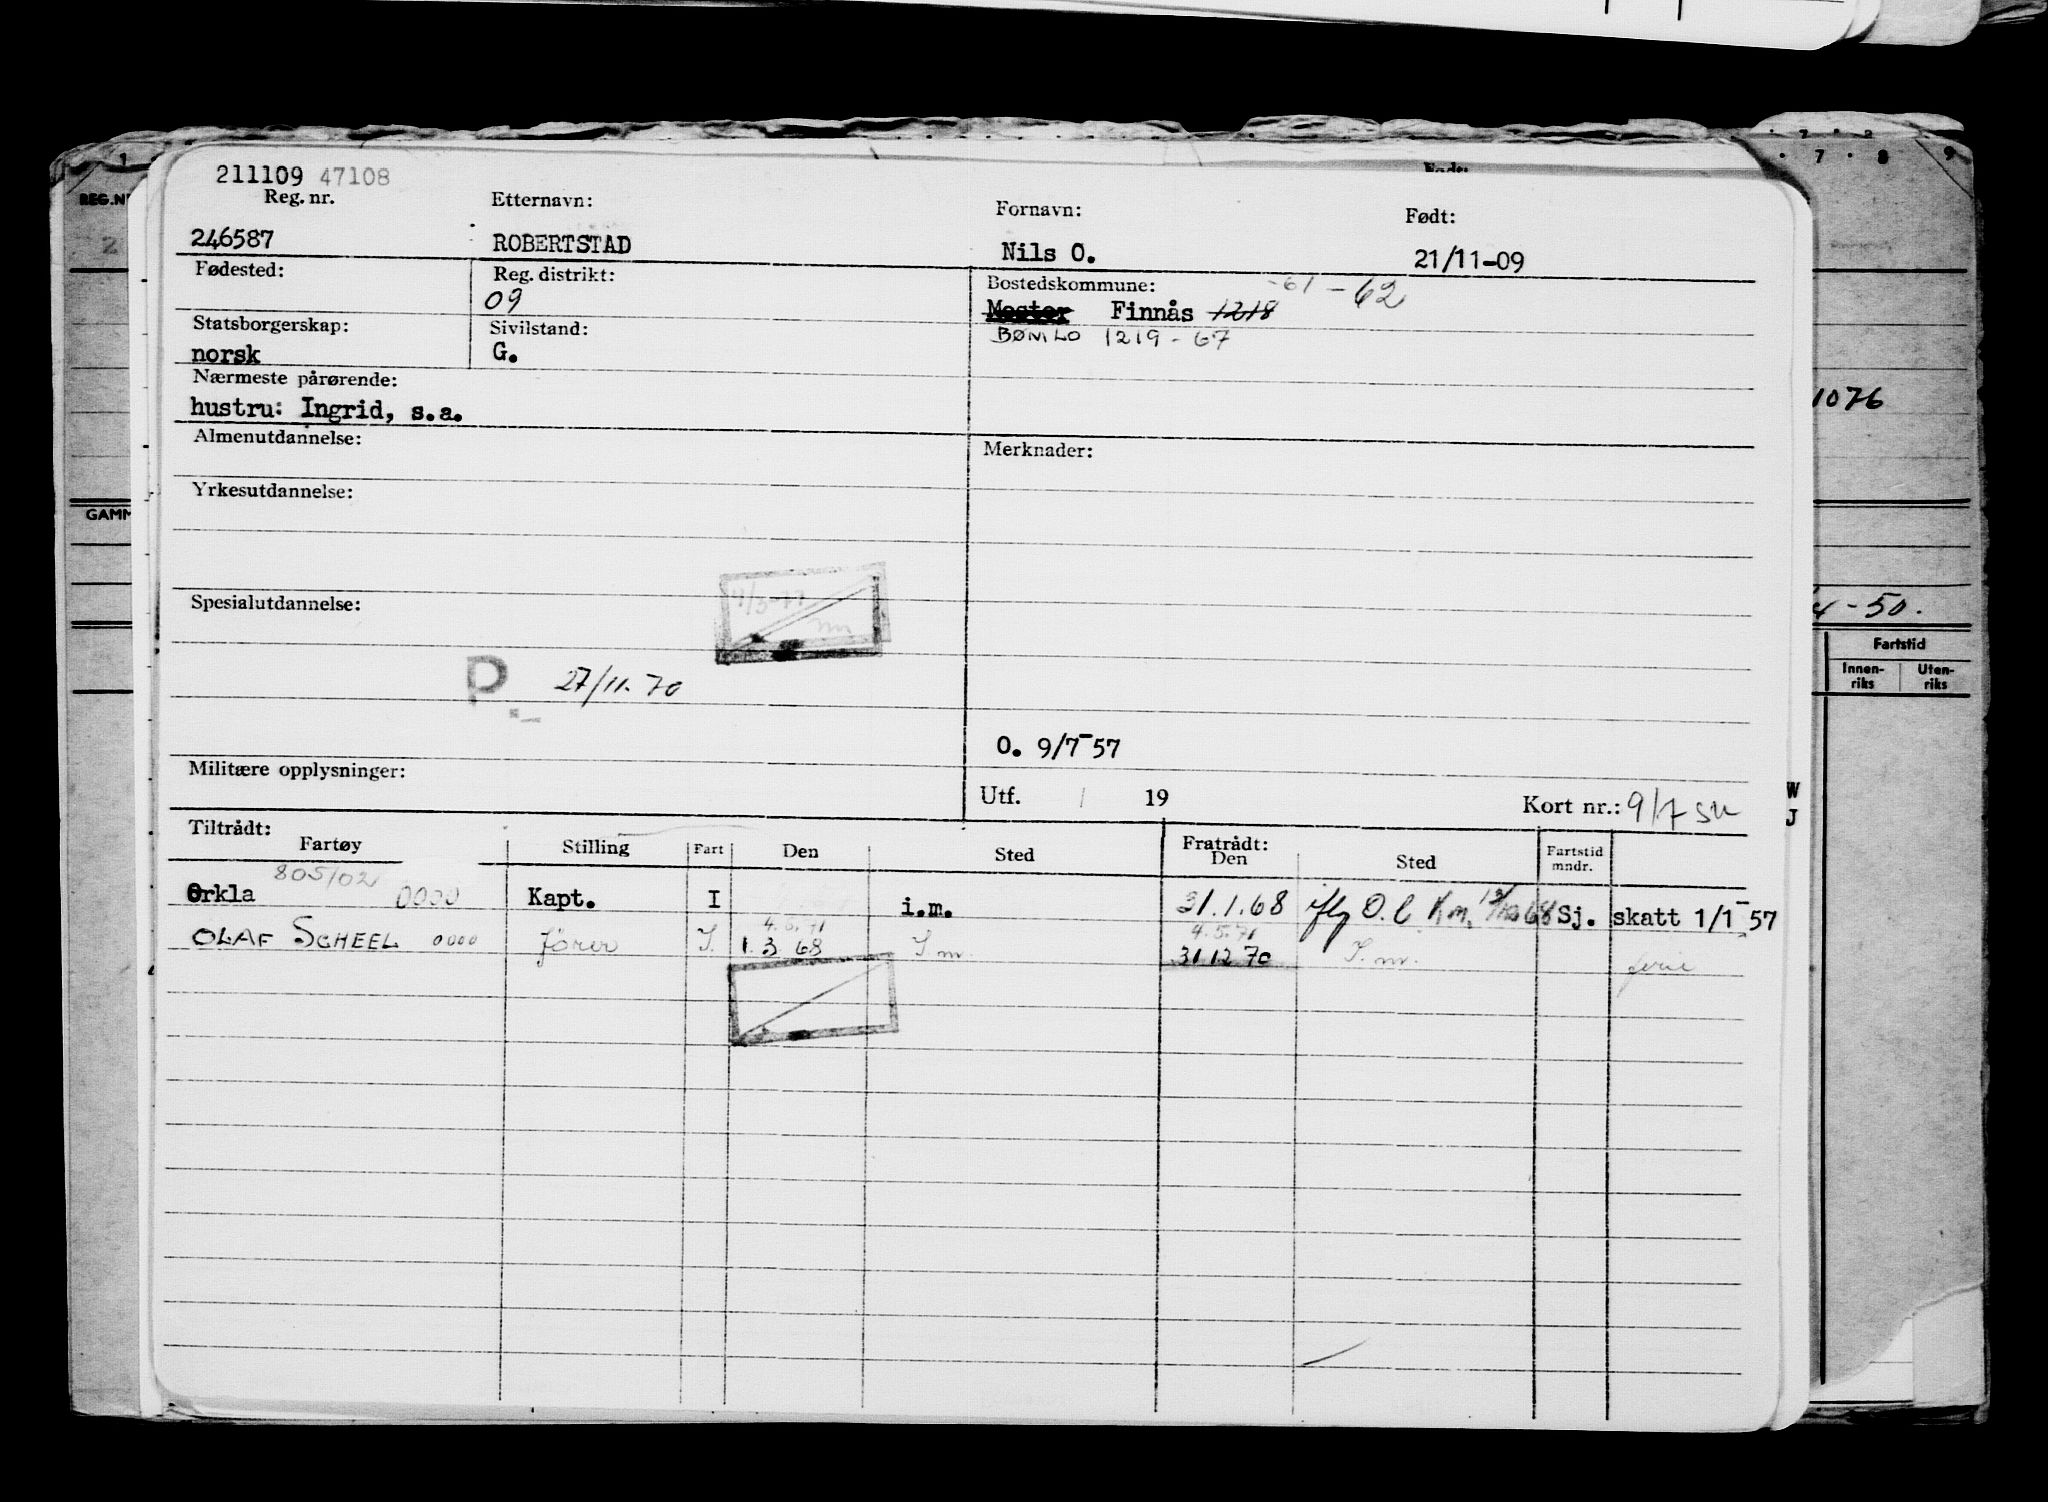 211109 47108
Reg. nr. Etternavn: Fornavn: Født:
246587 ROBERTSTAD Nils O. 21/11-09
Fødested: Reg. distrikt: Bostedskommune: -61 - 62
09 Moster Finnås 1218
Statsborgerskap: Sivilstand: BØMLO 1219 - 67
norsk G.
Nærmeste pårørende:
hustru: Ingrid, s.a.
Almenutdannelse: Merknader:
Yrkesutdannelse:
Spesialutdannelse:
P. 27/11. 70
O. 9/7-57
Militære opplysninger:
Utf. / 19 Kort nr.: 9/7 su
Tiltrådt: Fratrådt:
Fartøy Stilling Fart Den Sted Den Sted Fartstid mndr.
805/02
Orkla 0000 Kapt. I i.m. 31.1.68 iflg O.l. Km. Sj. skatt 1/1-57
4.5.71 4.5.71
OLAF SCHEEL 0000 fører I. 1.3.68 I.m. 31.12.70 I.m. ferie
REG.N
2
GAMM
7 8 9
1076
-50.
Fartstid
Innen-riks Uten-riks
W
J